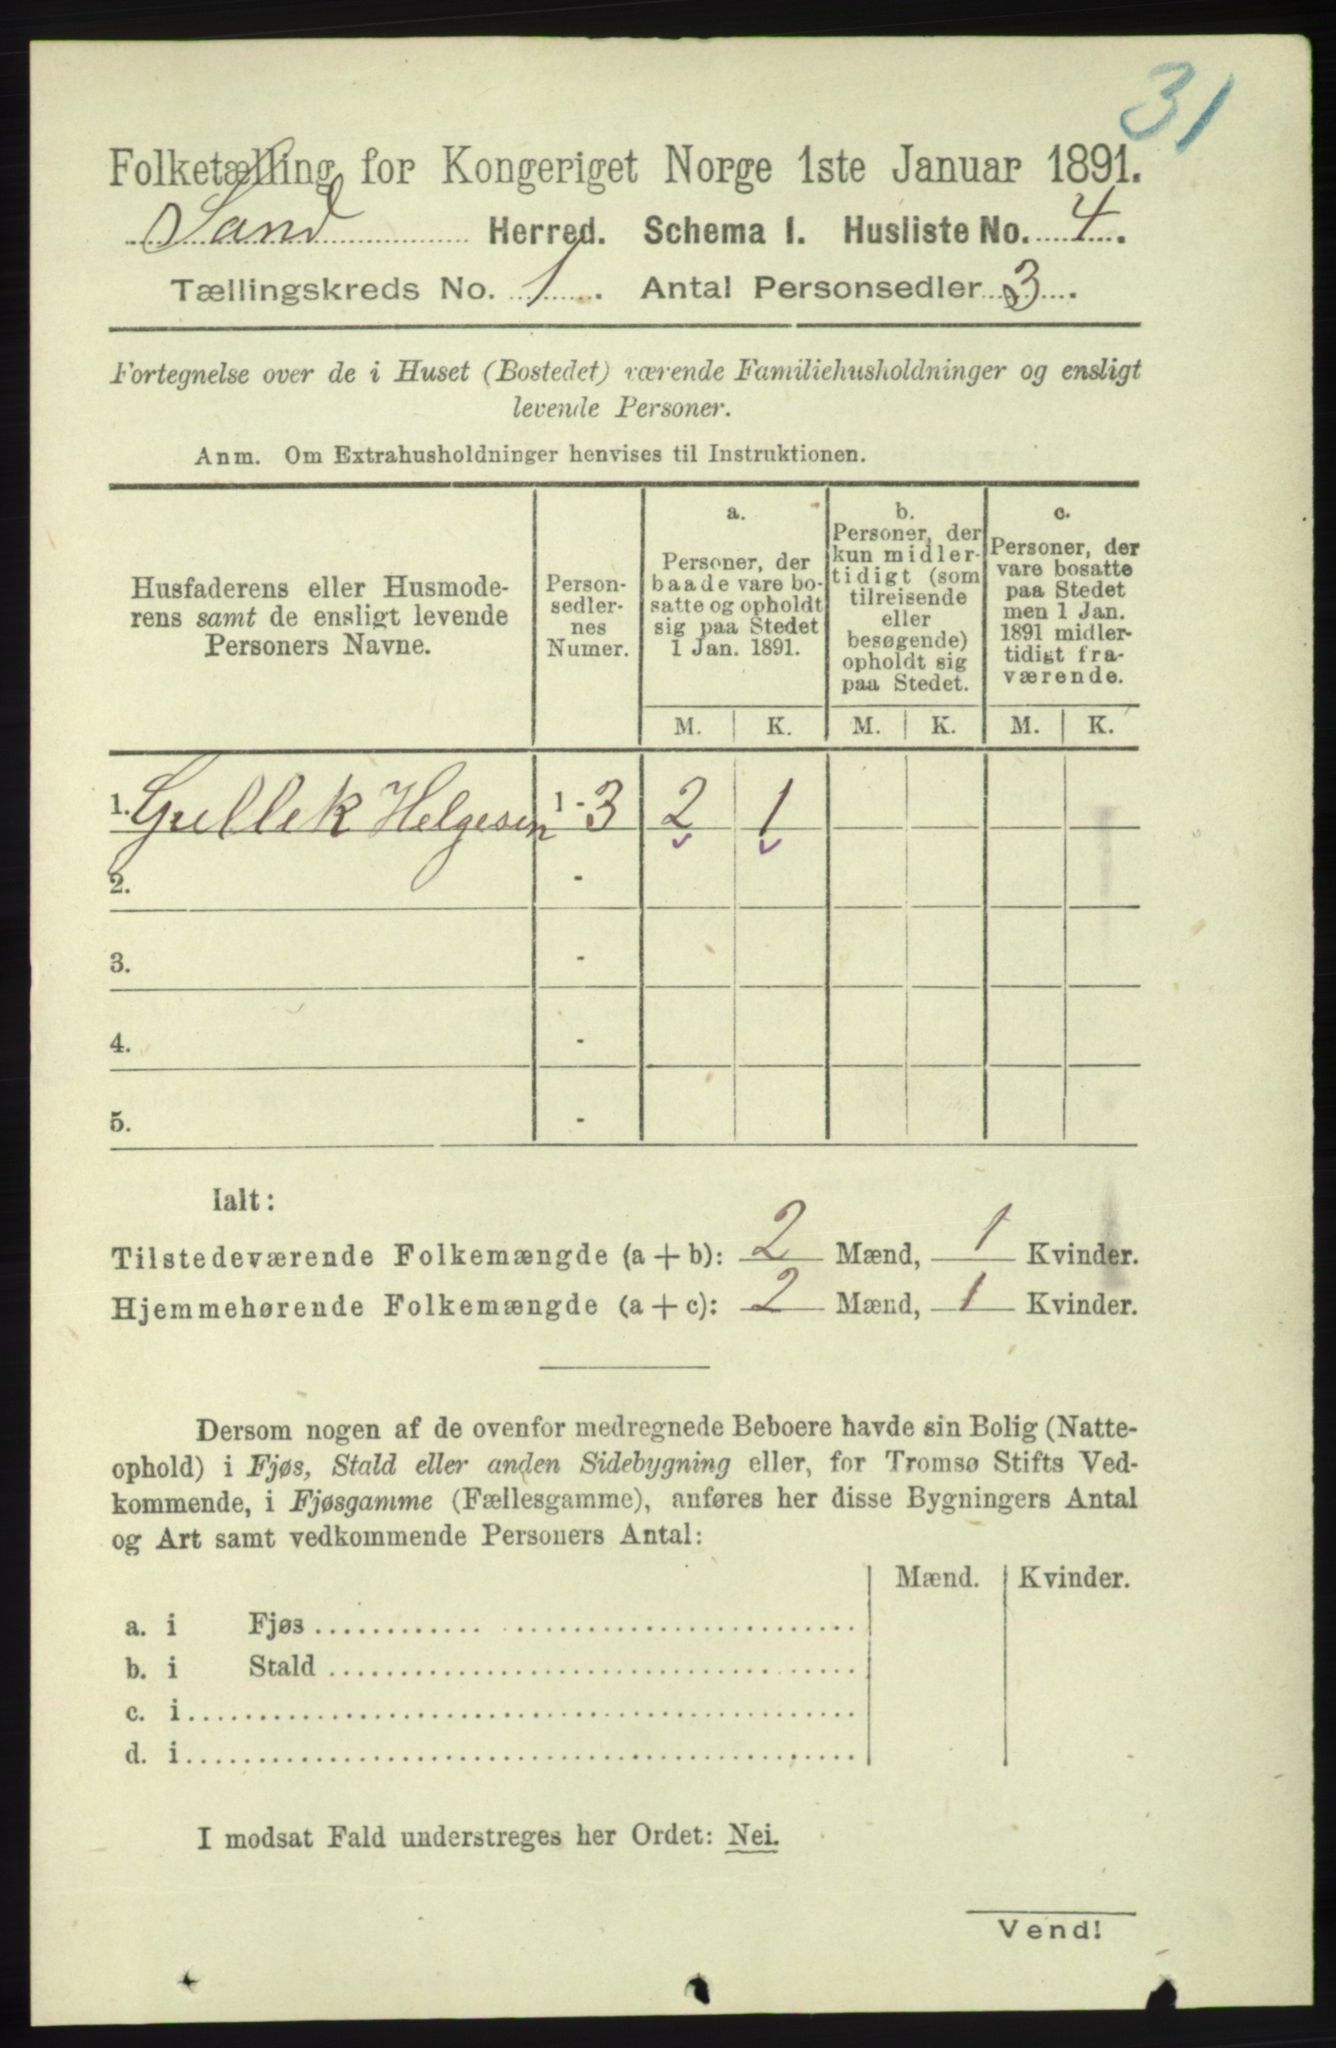 31
Folketælling for Kongeriget Norge 1ste Januar 1891.
Sand Herred. Schema I. Husliste No. 4.
Tællingskreds No. 1. Antal Personsedler 3.
Fortegnelse over de i Huset (Bostedet) værende Familiehusholdninger og ensligt
levende Personer.
Anm. Om Extrahusholdninger henvises til Instruktionen.
Husfaderens eller Husmode-
rens samt de ensligt levende
Personers Navne.
Person-
sedler-
nes
Numer.
a.
Personer, der
baade vare bo-
satte og opholdt
sig paa Stedet
1 Jan. 1891.
b.
Personer, der
kun midler-
tidigt (som
tilreisende
eller
besøgende)
opholdt sig
paa Stedet.
c.
Personer, der
vare bosatte
paa Stedet
men 1 Jan.
1891 midler-
tidigt fra-
værende.
M. K. M. K. M. K.
1. Gullek Helgesen 1 - 3 2 1
2. -
3. -
4. -
5. -
Ialt:
Tilstedeværende Folkemængde (a + b): 2 Mænd, 1 Kvinder.
Hjemmehørende Folkemængde (a + c): 2 Mænd, 1 Kvinder.
Dersom nogen af de ovenfor medregnede Beboere havde sin Bolig (Natte-
ophold) i Fjøs, Stald eller anden Sidebygning eller, for Tromsø Stifts Ved-
kommende, i Fjøsgamme (Fællesgamme), anføres her disse Bygningers Antal
og Art samt vedkommende Personers Antal:
Mænd. Kvinder.
a. i Fjøs
b. i Stald
c. i
d. i
I modsat Fald understreges her Ordet: Nei.
Vend!